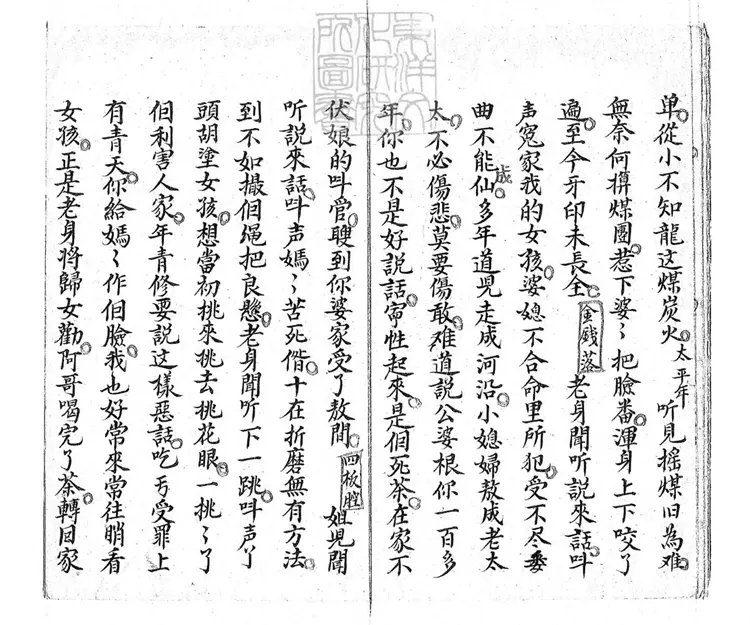 单從小不知龍这煤炭火太平年听見摇煤旧為难
無奈何搿煤圑惹下婆〻把臉番渾身上下咬了
遍至今牙印未長全金錢落老身聞听說来話叫
声冤家我的女孩婆媳不合命里所犯受不尽委
曲不能仙成多年道児走成河沿小媳婦敖成老太
太不必傷悲莫要傷敢难道説公婆根你一百多
年你也不是好説話寧性起來是個死茶在家不
伏娘的叫管聽到你婆家受了敖閗四板腔姐児聞
听說來話叫声媽〻苦死偺十在折磨無有方法
到不如撮個绳把良懸老身聞听下一跳叫声丫
頭胡塗女孩想當初挑來挑去挑花眼一挑〻了
個利害人家年青修要説这樣惡話吃亐受罪上
有青天你給媽〻作個臉我也好常來常往眊看
女孩正是老身將歸女勸阿哥喝完了茶轉囬家